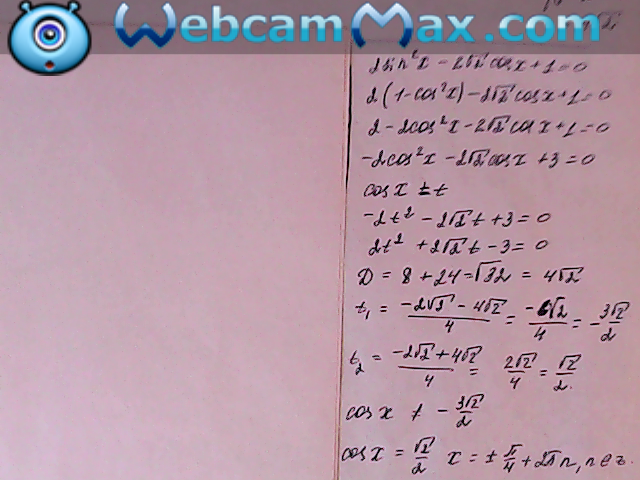 WebcamMax.com
2sin²x - 2√2 cosx + 1 = 0
2(1 - cos²x) - 2√2 cosx + 1 = 0
2 - 2cos²x - 2√2 cosx + 1 = 0
-2cos²x - 2√2 cosx + 3 = 0
cosx = t
-2t² - 2√2 t + 3 = 0
2t² + 2√2 t - 3 = 0
D = 8 + 24 = √32 = 4√2
t₁ = (-2√2 - 4√2)/4 = (-6√2)/4 = -3√2/2
t₂ = (-2√2 + 4√2)/4 = 2√2/4 = √2/2.
cosx ≠ -3√2/2
cosx = √2/2 x = ± π/4 + 2πn, n∈z.